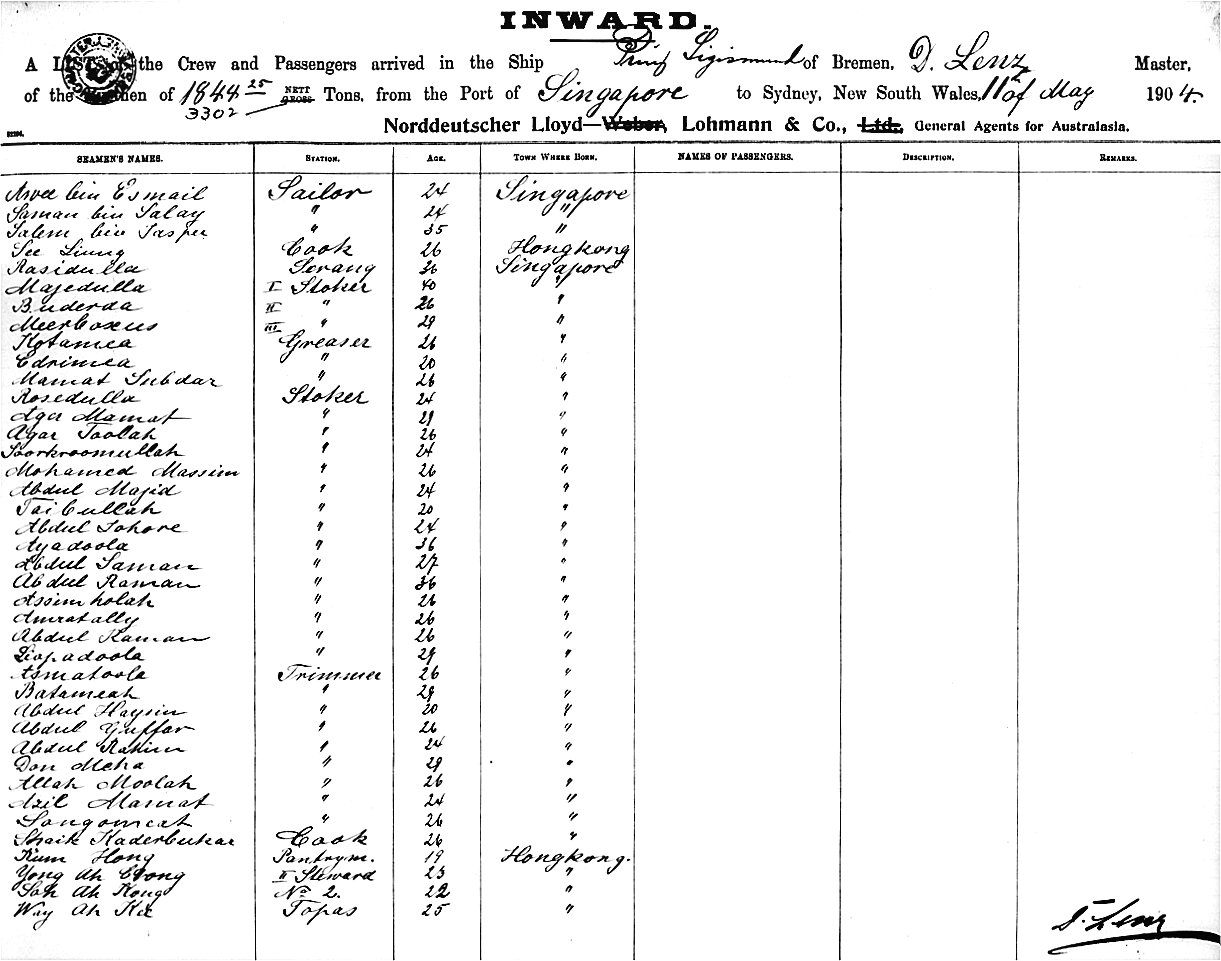 INWARD.
A LIST of the Crew and Passengers arrived in the Ship Prinz Sigismund of Bremen, D. Lenz Master,
of the Burthen of 1844 25 NETT GROSS Tons, from the Port of Singapore to Sydney, New South Wales, 11th of May 1904.
3302
Norddeutscher Lloyd—Weber, Lohmann & Co., Ltd., General Agents for Australasia.
SEAMEN'S NAMES. STATION. AGE. TOWN WHERE BORN. NAMES OF PASSENGERS. DESCRIPTION. REMARKS.
Awee bin Esmail Sailor 24 Singapore
Saman bin Salay " 24 "
Salem bin " 35 "
See Liung Cook 26 Hongkong
Rasidulla Serang 36 Singapore
Majedulla I Stoker 40 "
Buderda II " 26 "
Meerboxeus III " 29 "
Kotamea Greaser 26 "
Edrimea " 20 "
Mamat Subdar " 26 "
Rosedulla Stoker 24 "
Ager Mamat " 29 "
Agar Toolah " 26 "
Soorkroomullah " 24 "
Mohamed Massim " 26 "
Abdul Majid " 24 "
Taibullah " 20 "
Abdul Johore " 24 "
Ayadoola " 36 "
Abdul Saman " 27 "
Abdul Raman " 36 "
Assimholah " 26 "
Amratally " 26 "
Abdul Raman " 26 "
" 29 "
Asmatoola Trimmer 26 "
Batameah " 29 "
Abdul Haysin " 20 "
Abdul Guffar " 26 "
Abdul Rahim " 24 "
Don Meha " 29 "
Allah Moolah " 26 "
Azil Mamat " 24 "
Songomeat " 26 "
Shaik Kaderbukar Cook 26 "
Kum Hong Pantrym. 19 Hongkong.
Yong Ah Chong II Steward 23 "
Soh Ah Kong No 2. 22 "
Way Ah Kee Topas 25 "
D. Lenz